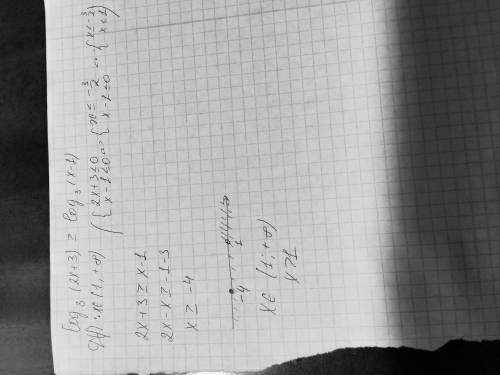 log₃(2x+3) ≥ log₃(x-1)
x∈(1;+∞) ({2x+3≤0 x-1≤0 {x≤ -3/2 x-1≤0 {x≤-3/2 x≤1)
2x+3 ≥ x-1
2x-x ≥ -1-3
x ≥ -4
-4 1
x∈ (1;+∞)
x>1